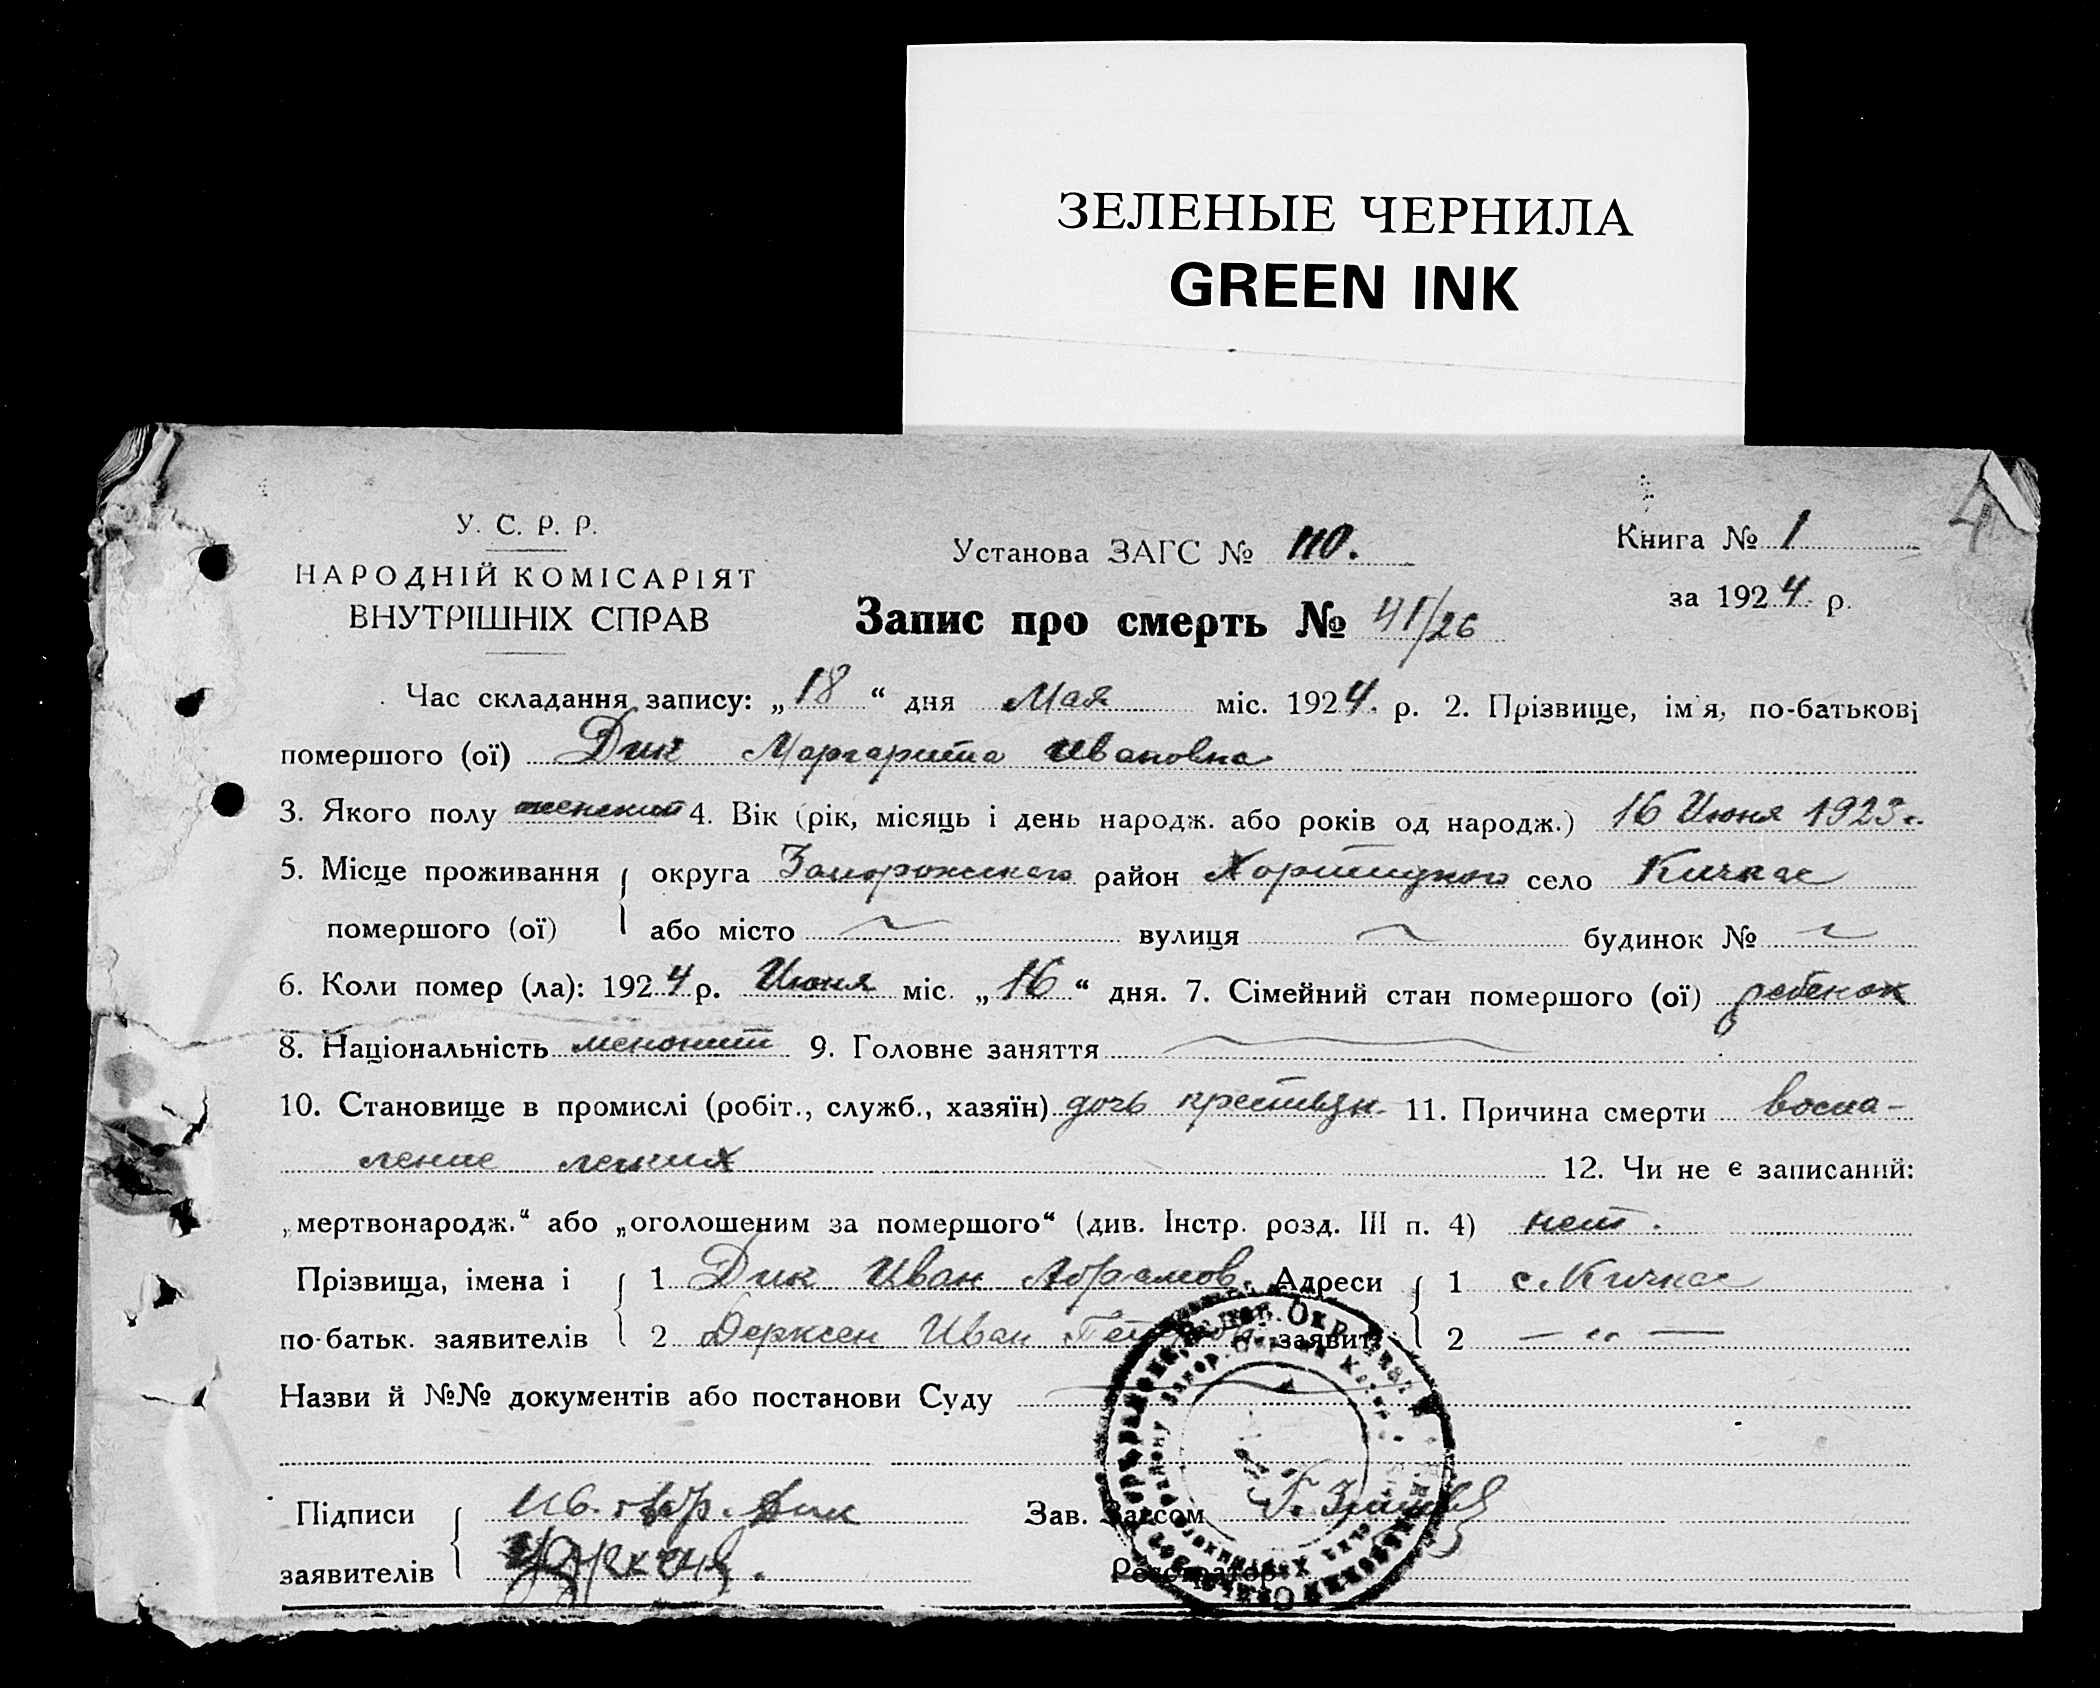 ЗЕЛЕНЫЕ ЧЕРНИЛА
GREEN INK
4
У. С. Р. Р.
НАРОДНІЙ КОМІСАРІЯТ
ВНУТРІШНІХ СПРАВ
Установа ЗАГС № 110.
Книга № 1
за 1924 р.
Запис про смерть № 41/26
Час складання запису: „18“ дня Мая міс. 1924. р. 2. Прізвище, ім'я, по-батькові
помершого (ої) Дик Маргарита Ивановна
3. Якого полу женский 4. Вік (рік, місяць і день народж. або років од народж.) 16 Июня 1923 г.
5. Місце проживання округа Запорожского район Хортицкого село Кичкас
помершого (ої) або місто вулиця будинок №
6. Коли помер (ла): 1924 р. Июня міс. „16“ дня. 7. Сімейний стан помершого (ої) ребенок
8. Національність менонит 9. Головне заняття
10. Становище в промислі (робіт., служб., хазяїн) дочь крестьян. 11. Причина смерти воспа-
ление легких 12. Чи не є записаний:
„мертвонародж.“ або „оголошеним за помершого“ (див. Інстр. розд. III п. 4) нет.
Прізвища, імена і 1 Дик Иван Абрамов. Адреси 1 с. Кичкас
по-батьк. заявителів 2 Дерксен Иван заявит. 2 — „ —
Назви й №№ документів або постанови Суду
Підписи Ив. Абр. Дик Зав. Загсом
заявителів Регістратор